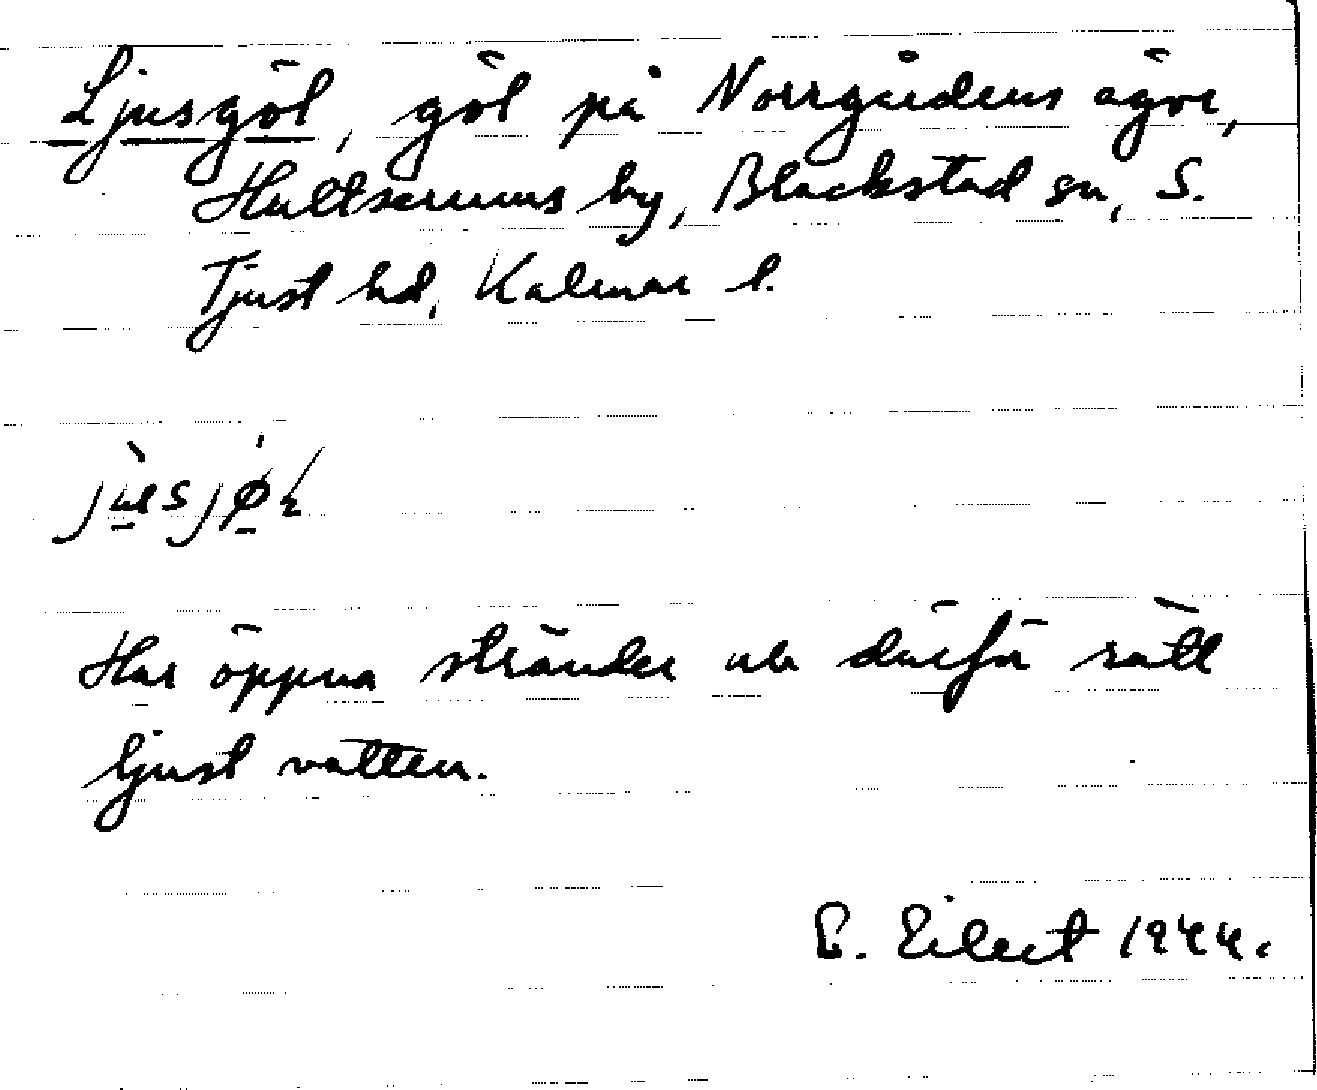 Ljusgöl, göl på Norrgårdens ägor,
Hultserums by, Blackstad sn, S.
Tjust hd, Kalmar l.
Har öppna stränder och därför rätt
ljust vatten.
E. Eilert 1944.